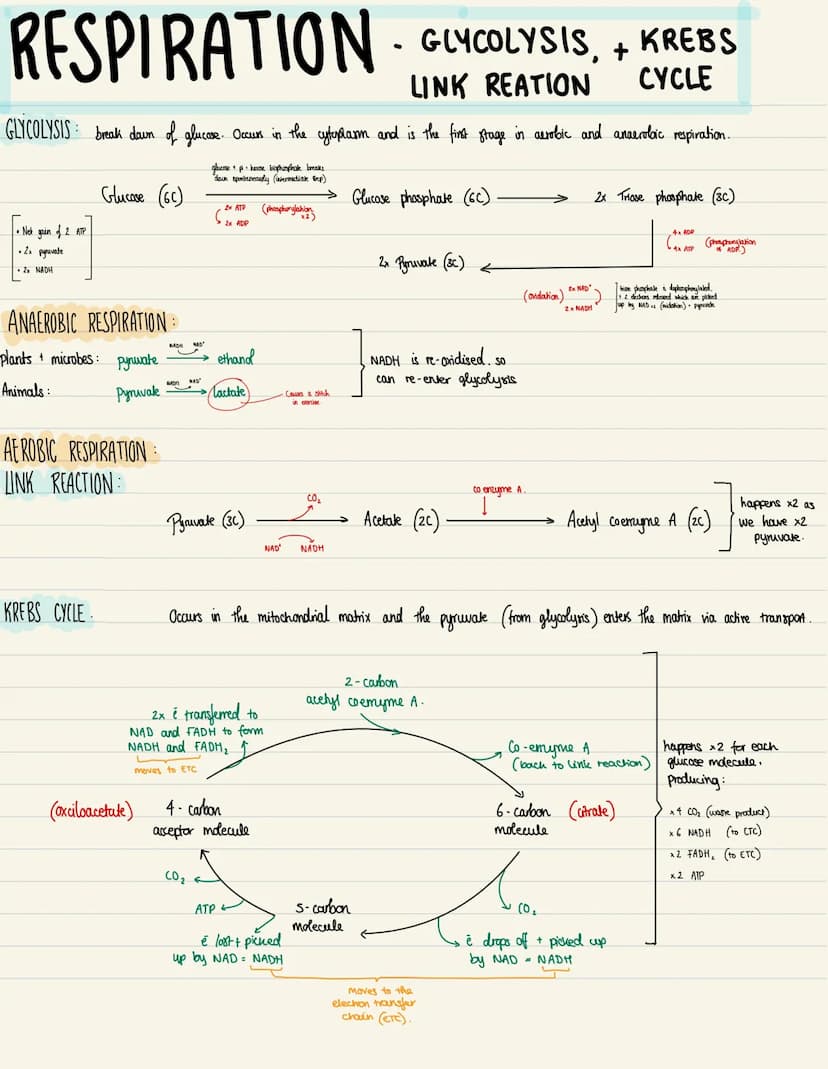 RESPIRATION - GLYCOLYSIS, + KREBS
LINK REATION CYCLE
GLYCOLYSIS: break down of glucose. Occurs in the cytoplasm and is the first stage in aerobic and anaerobic respiration.
glucose + p = hexose bisphosphate breaks
down spontaneously (intermediate step)
Glucose (6C)
Glucose phosphate (6C)
2x Triose phosphate (3C)
2x ATP
2x ADP
(phosphorylation
x2)
• Net gain of 2 ATP
• 2x pyruvate
• 2x NADH
4x ADP
4x ATP
(phosphorylation
of ADP)
2x Pyruvate (3C)
(oxidation)
2x NAD⁺
2x NADH
triose phosphate is dephosphorylated,
+ 2 electrons released which are picked
up by NAD (oxidation) = pyruvate
ANAEROBIC RESPIRATION:
Plants + microbes: pyruvate
NADH NAD⁺
ethanol
Animals: Pyruvate
NADH NAD⁺
lactate
Causes a stitch
in exercise
NADH is re-oxidised. so
can re-enter glycolysis
AEROBIC RESPIRATION:
LINK REACTION:
CO₂
co enzyme A.
Pyruvate (3C)
Acetate (2C)
Acetyl coenzyme A (2C)
NAD⁺ NADH
happens x2 as
we have x2
pyruvate.
KREBS CYCLE. Occurs in the mitochondrial matrix and the pyruvate (from glycolysis) enters the matrix via active transport.
2-carbon
acetyl coenzyme A.
2x ē transferred to
NAD and FADH to form
NADH and FADH₂
moves to ETC
Co-enzyme A
(back to link reaction)
happens x2 for each
glucose molecule.
producing:
x4 CO₂ (waste product)
x6 NADH (to ETC)
x2 FADH₂ (to ETC)
x2 ATP
(oxciloacetate)
4-carbon
acceptor molecule
6-carbon
molecule
(citrate)
CO₂
ATP
5-carbon
molecule
CO₂
ē lost + picked
up by NAD = NADH
ē drops off + picked up
by NAD = NADH
moves to the
electron transfer
chain (ETC).